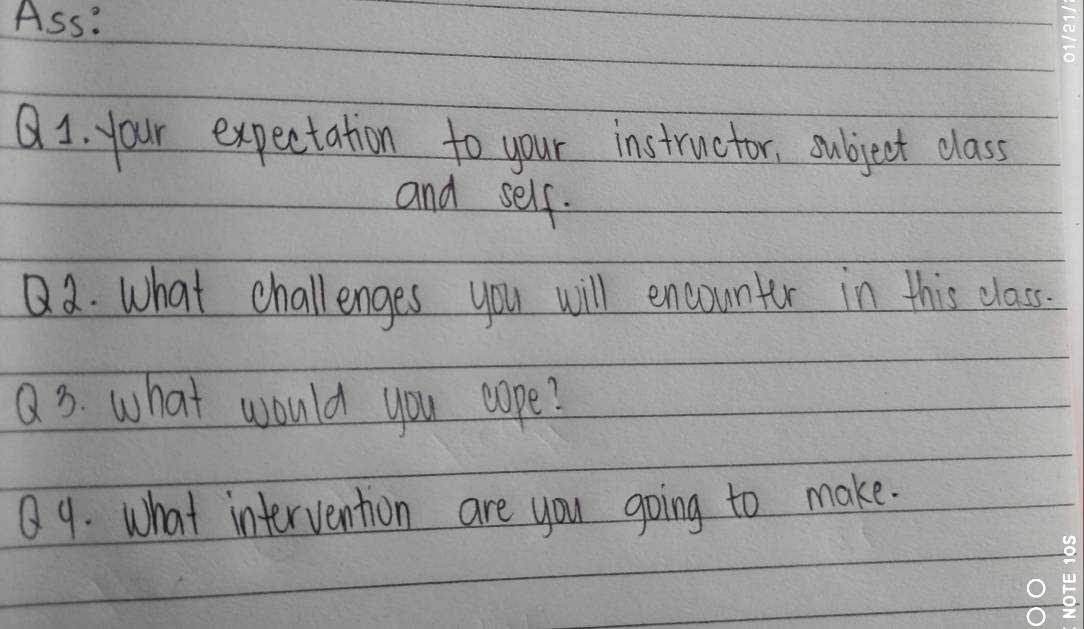 Ass:
Q1. Your expectation to your instructor, subject class
and self.
Q2. What challenges you will encounter in this class.
Q3. What would you cope?
Q4. What intervention are you going to make.
01/21/2
NOTE 10S